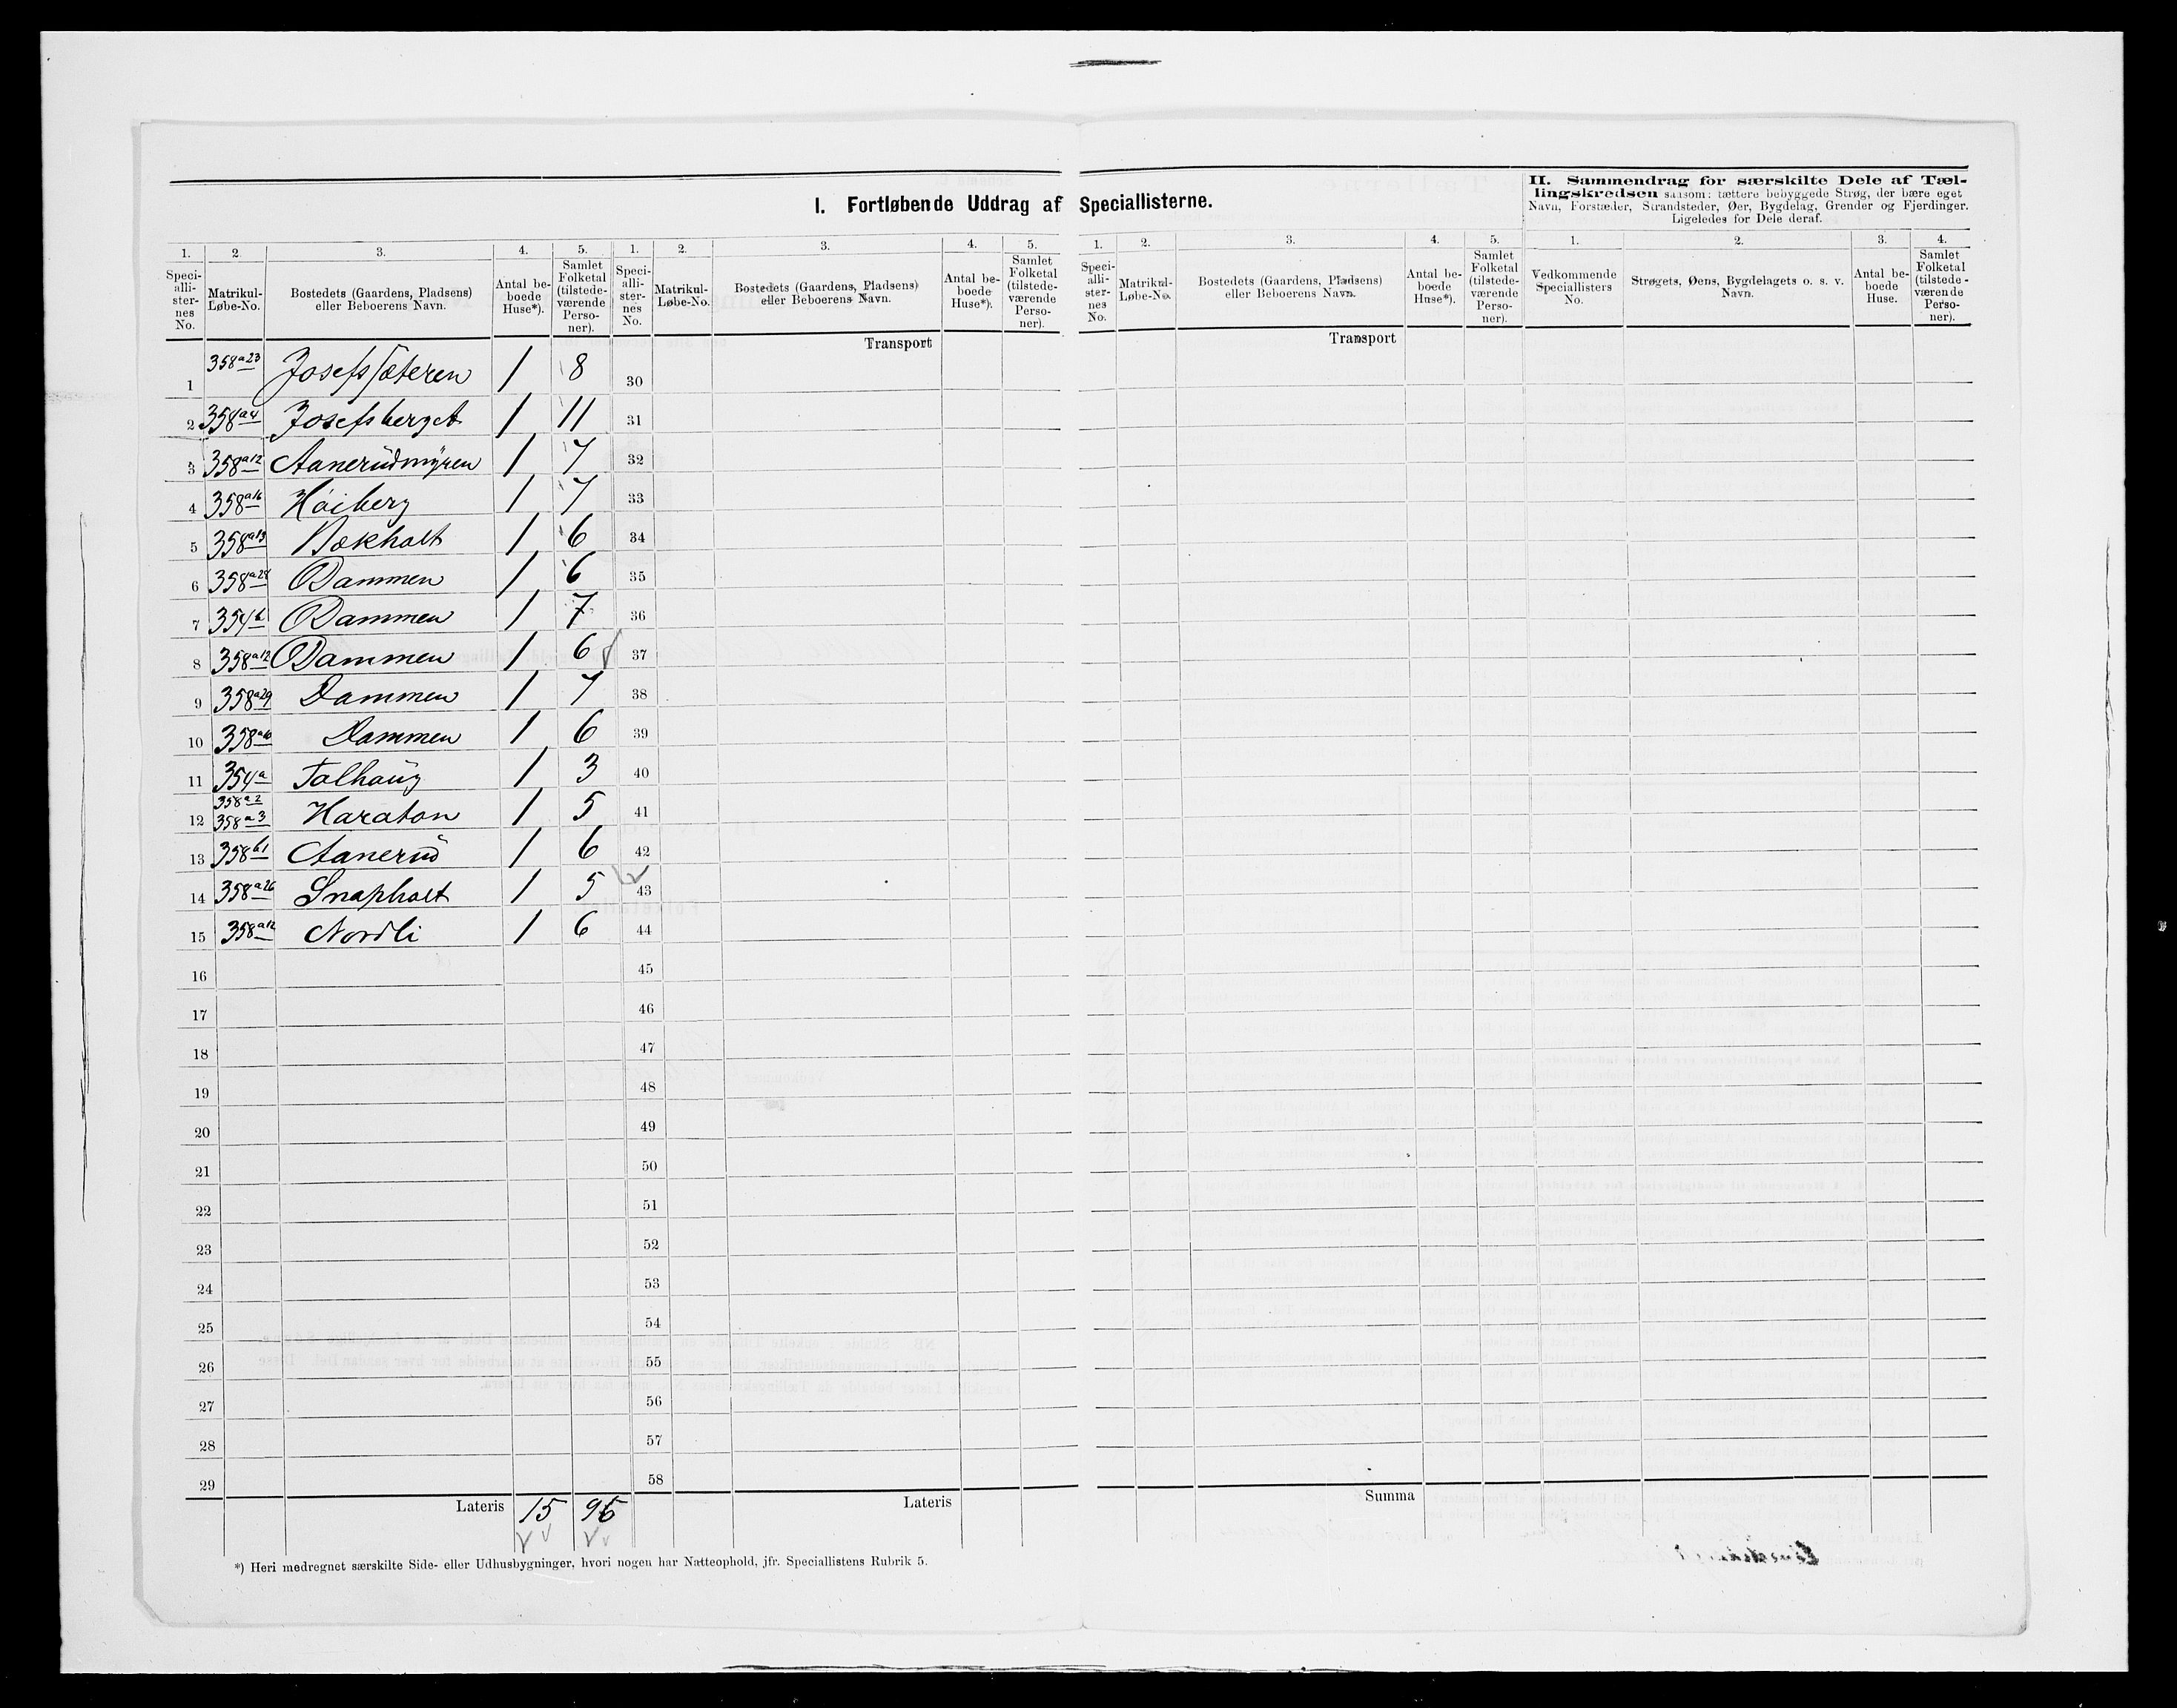 I. Fortløbende Uddrag af Speciallisterne.
II. Sammendrag for særskilte Dele af Tæl-
lingskredsen saasom: tættere bebyggede Strøg, der bære eget
Navn, Forstæder, Strandsteder, Øer, Bygdelag, Grender og Fjerdinger.
Ligeledes for Dele deraf.
1. 2. 3. 4. 5. 1. 2. 3. 4. 5. 1. 2. 3. 4. 5. 1. 2. 3. 4.
Speci-alli-ster-nes No. Matrikul-Løbe-No. Bostedets (Gaardens, Pladsens) eller Beboerens Navn. Antal be-boede Huse*). Samlet Folketal (tilstede-værende Perso-ner).
Speci-alli-ster-nes No. Matrikul-Løbe-No. Bostedets (Gaardens, Pladsens) eller Beboerens Navn. Antal be-boede Huse*). Samlet Folketal (tilstede-værende Perso-ner).
Speci-alli-ster-nes No. Matrikul-Løbe-No. Bostedets (Gaardens, Pladsens) eller Beboerens Navn. Antal be-boede Huse*). Samlet Folketal (tilstede-værende Perso-ner).
Vedkommende Speciallisters No. Strøgets, Øens, Bygdelagets o. s. v. Navn. Antal be-boede Huse. Samlet Folketal (tilstede-værende Perso-ner).
Transport Transport
1 358a23 Josefsæteren 1 8 30
2 358a4 Josefsberget 1 11 31
3 358a12 Aanerudmyren 1 7 32
4 358a16 Høiberg 1 7 33
5 358a13 Bækholt 1 6 34
6 358a28 Dammen 1 6 35
7 354b Dammen 1 7 36
8 358a12 Dammen 1 6 37
9 358a29 Dammen 1 7 38
10 358a10 Dammen 1 6 39
11 354a Talhaug 1 3 40
358a2
12 358a3 Haraton 1 5 41
13 358b1 Aanerud 1 6 42
14 358a26 Snapholt 1 5 43
15 358a12 Nordli 1 6 44
16 45
17 46
18 47
19 48
20 49
21 50
22 51
23 52
24 53
25 54
26 55
27 56
28 57
29 58
Lateris 15 96 Lateris Summa
*) Heri medregnet særskilte Side- eller Udhusbygninger, hvori nogen har Natteophold, jfr. Speciallistens Rubrik 5.